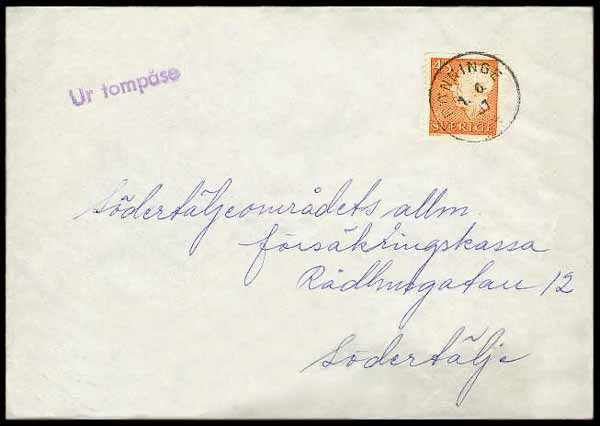 Ur tompåse
RÖNNINGE
7. 6
SVERIGE
Södertäljeområdets allm.
försäkringskassa
Rådhusgatan 12
Södertälje